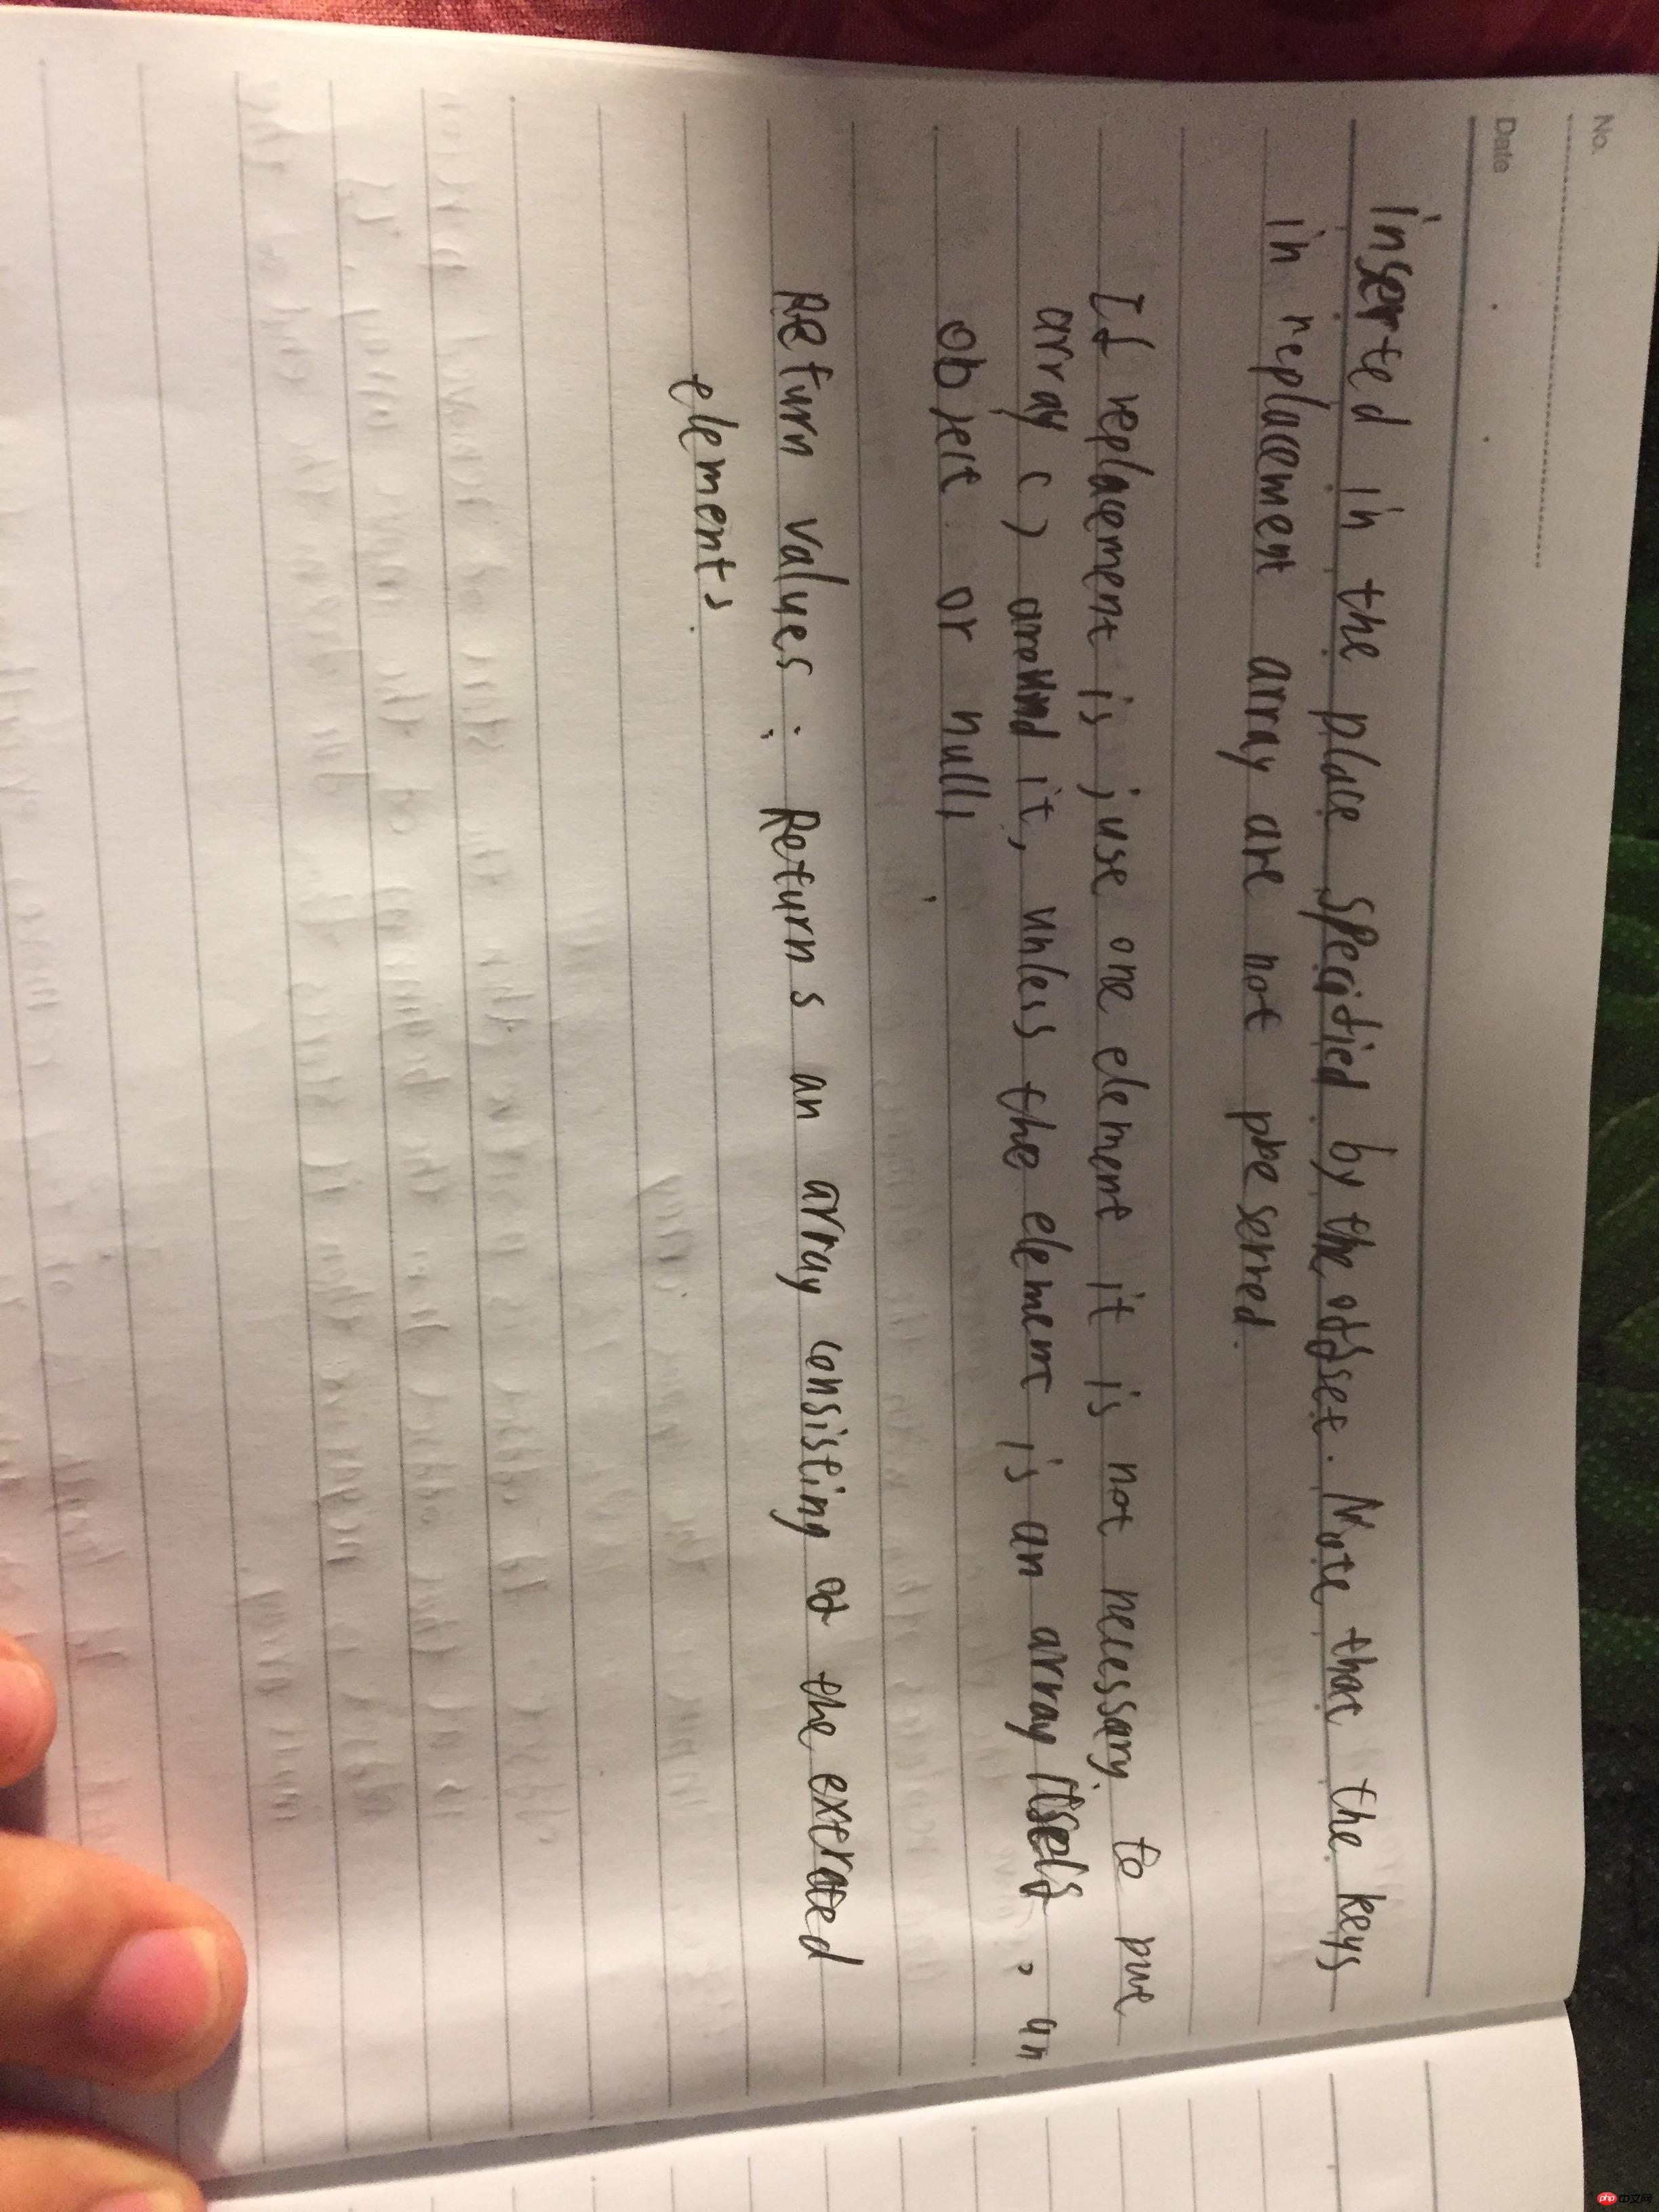 No.
Date
inserted in the place specified by the offset. Note that the keys
in replacement array are not preserred.
If replacement is juse one element it is not necessary to put
array () around it, unless the element is an array itself, an
object or null,
Return values: Returns an array consisting of the extrated
elements.
php 中文网